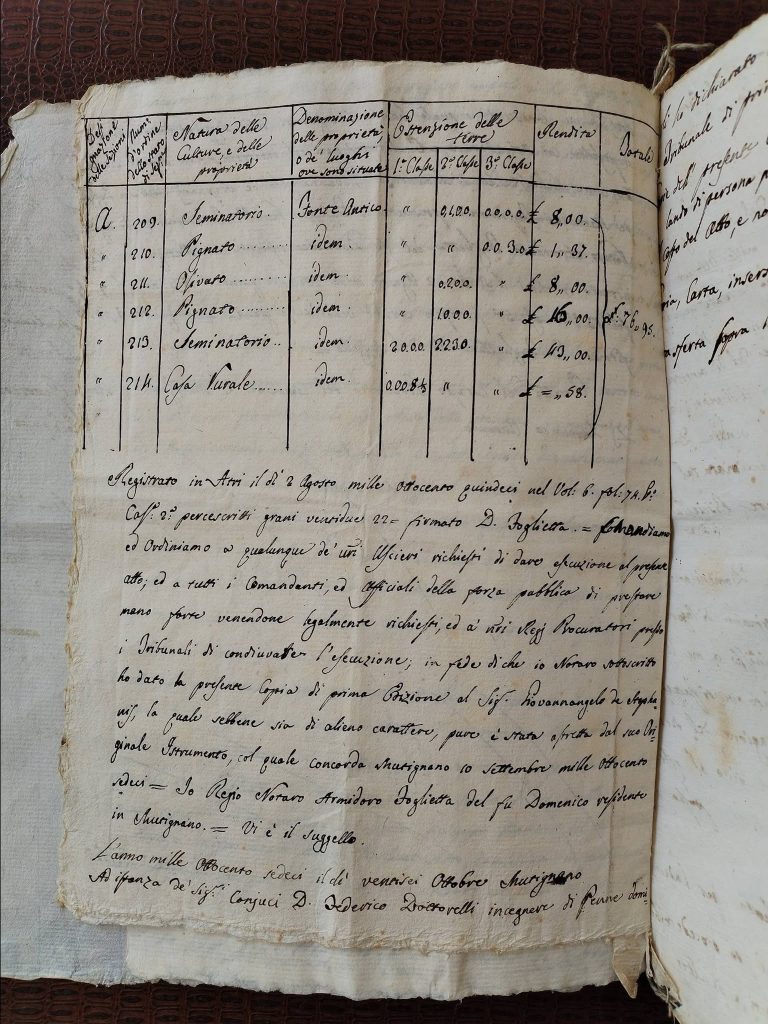 Numi d'ordine dello stato di sez.
Natura delle Culture, e delle proprietà
Denominazione delle proprietà, o de' luoghi ove sono situate
Estenzione delle terre
1.ª Classe 2.ª Classe 3.ª Classe
Rendita
Totale
A. 209. Seminatorio. Fonte Antico. " 0.1.0.0. 0.0.0.0. £ 8,,00.
" 210. Pignato idem. " " 0.0.3.0 £ 1,,37.
" 211. Olivato idem. " 0.2.0.0. " £ 8,,00.
" 212. Pignato idem. " 1.0.0.0. " £ 16,,00. £: 76,,95.
" 213. Seminatorio idem. 2.0.0.0. 2.2.3.0. " £ 43,,00.
" 214. Casa Rurale idem. " " £ =,,58.
Registrato in Atri il dì 2 Agosto mille ottocento quindeci nel Vol: 6. fol: 74. Vº
Casº. 2.º percescritti grani ventidue 22= firmato D. Foglietta. =
ed Ordiniamo a qualunque de' Uscieri richiesti di dare esecuzione al presente
atto; ed a tutti i Comandanti, ed Officiali della forza pubblica di prestare
mano forte venendone legalmente richiesti, ed a' nri Regj Procuratori presso
i Tribunali di l'esecuzione; in fede di che io Notaro sottoscritto
ho dato la presente Copia di prima Edizione al Sig.r Giovannangelo de Stepha-
nis, la quale sebbene sia di alieno carattere, pure è stata estratta dal suo Ori-
ginale Istrumento, col quale concorda Mutignano 10 settembre mille Ottocento
sedeci = Io Regio Notaro Armidoro Foglietta del fu Domenico residente
in Mutignano. = Vi è il suggello.
L'anno mille Ottocento sedeci il dì ventisei Ottobre Mutignano
Ad istanza de' Sig.ri Conjuci D. Federico Dottorelli incegnere di Penne domi-